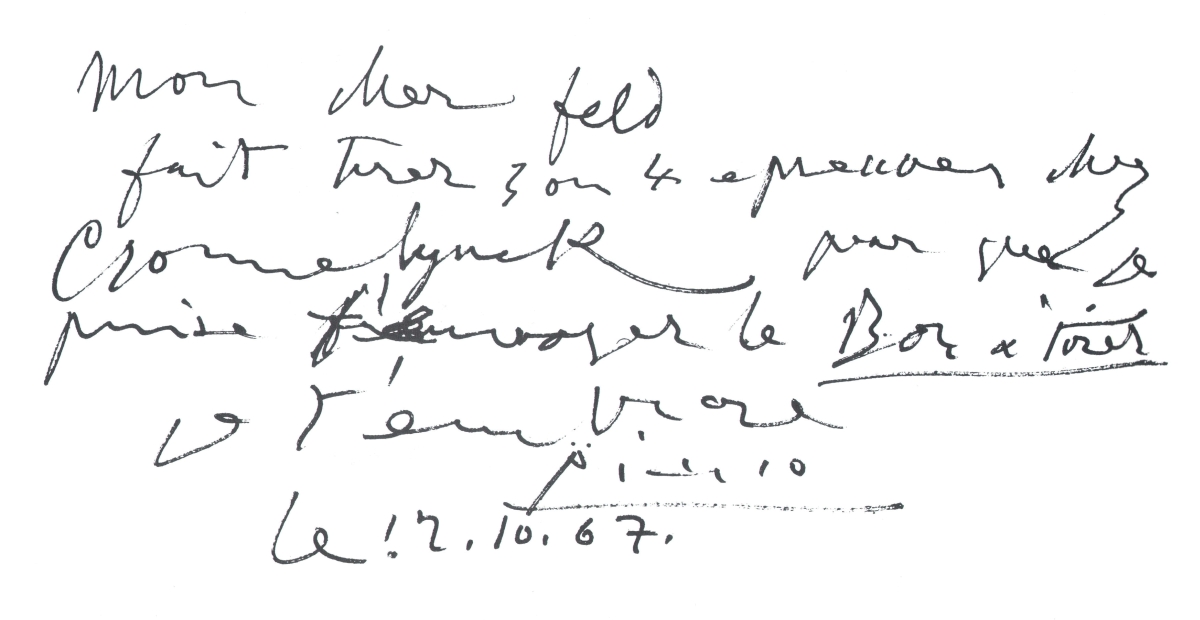 Mon cher feld
fait tirer 3 ou 4 epreuves chez
Cromme lynck pour que je
puise t'envoyer le Bon a tirer
je t'embrace
le 12.10.67.